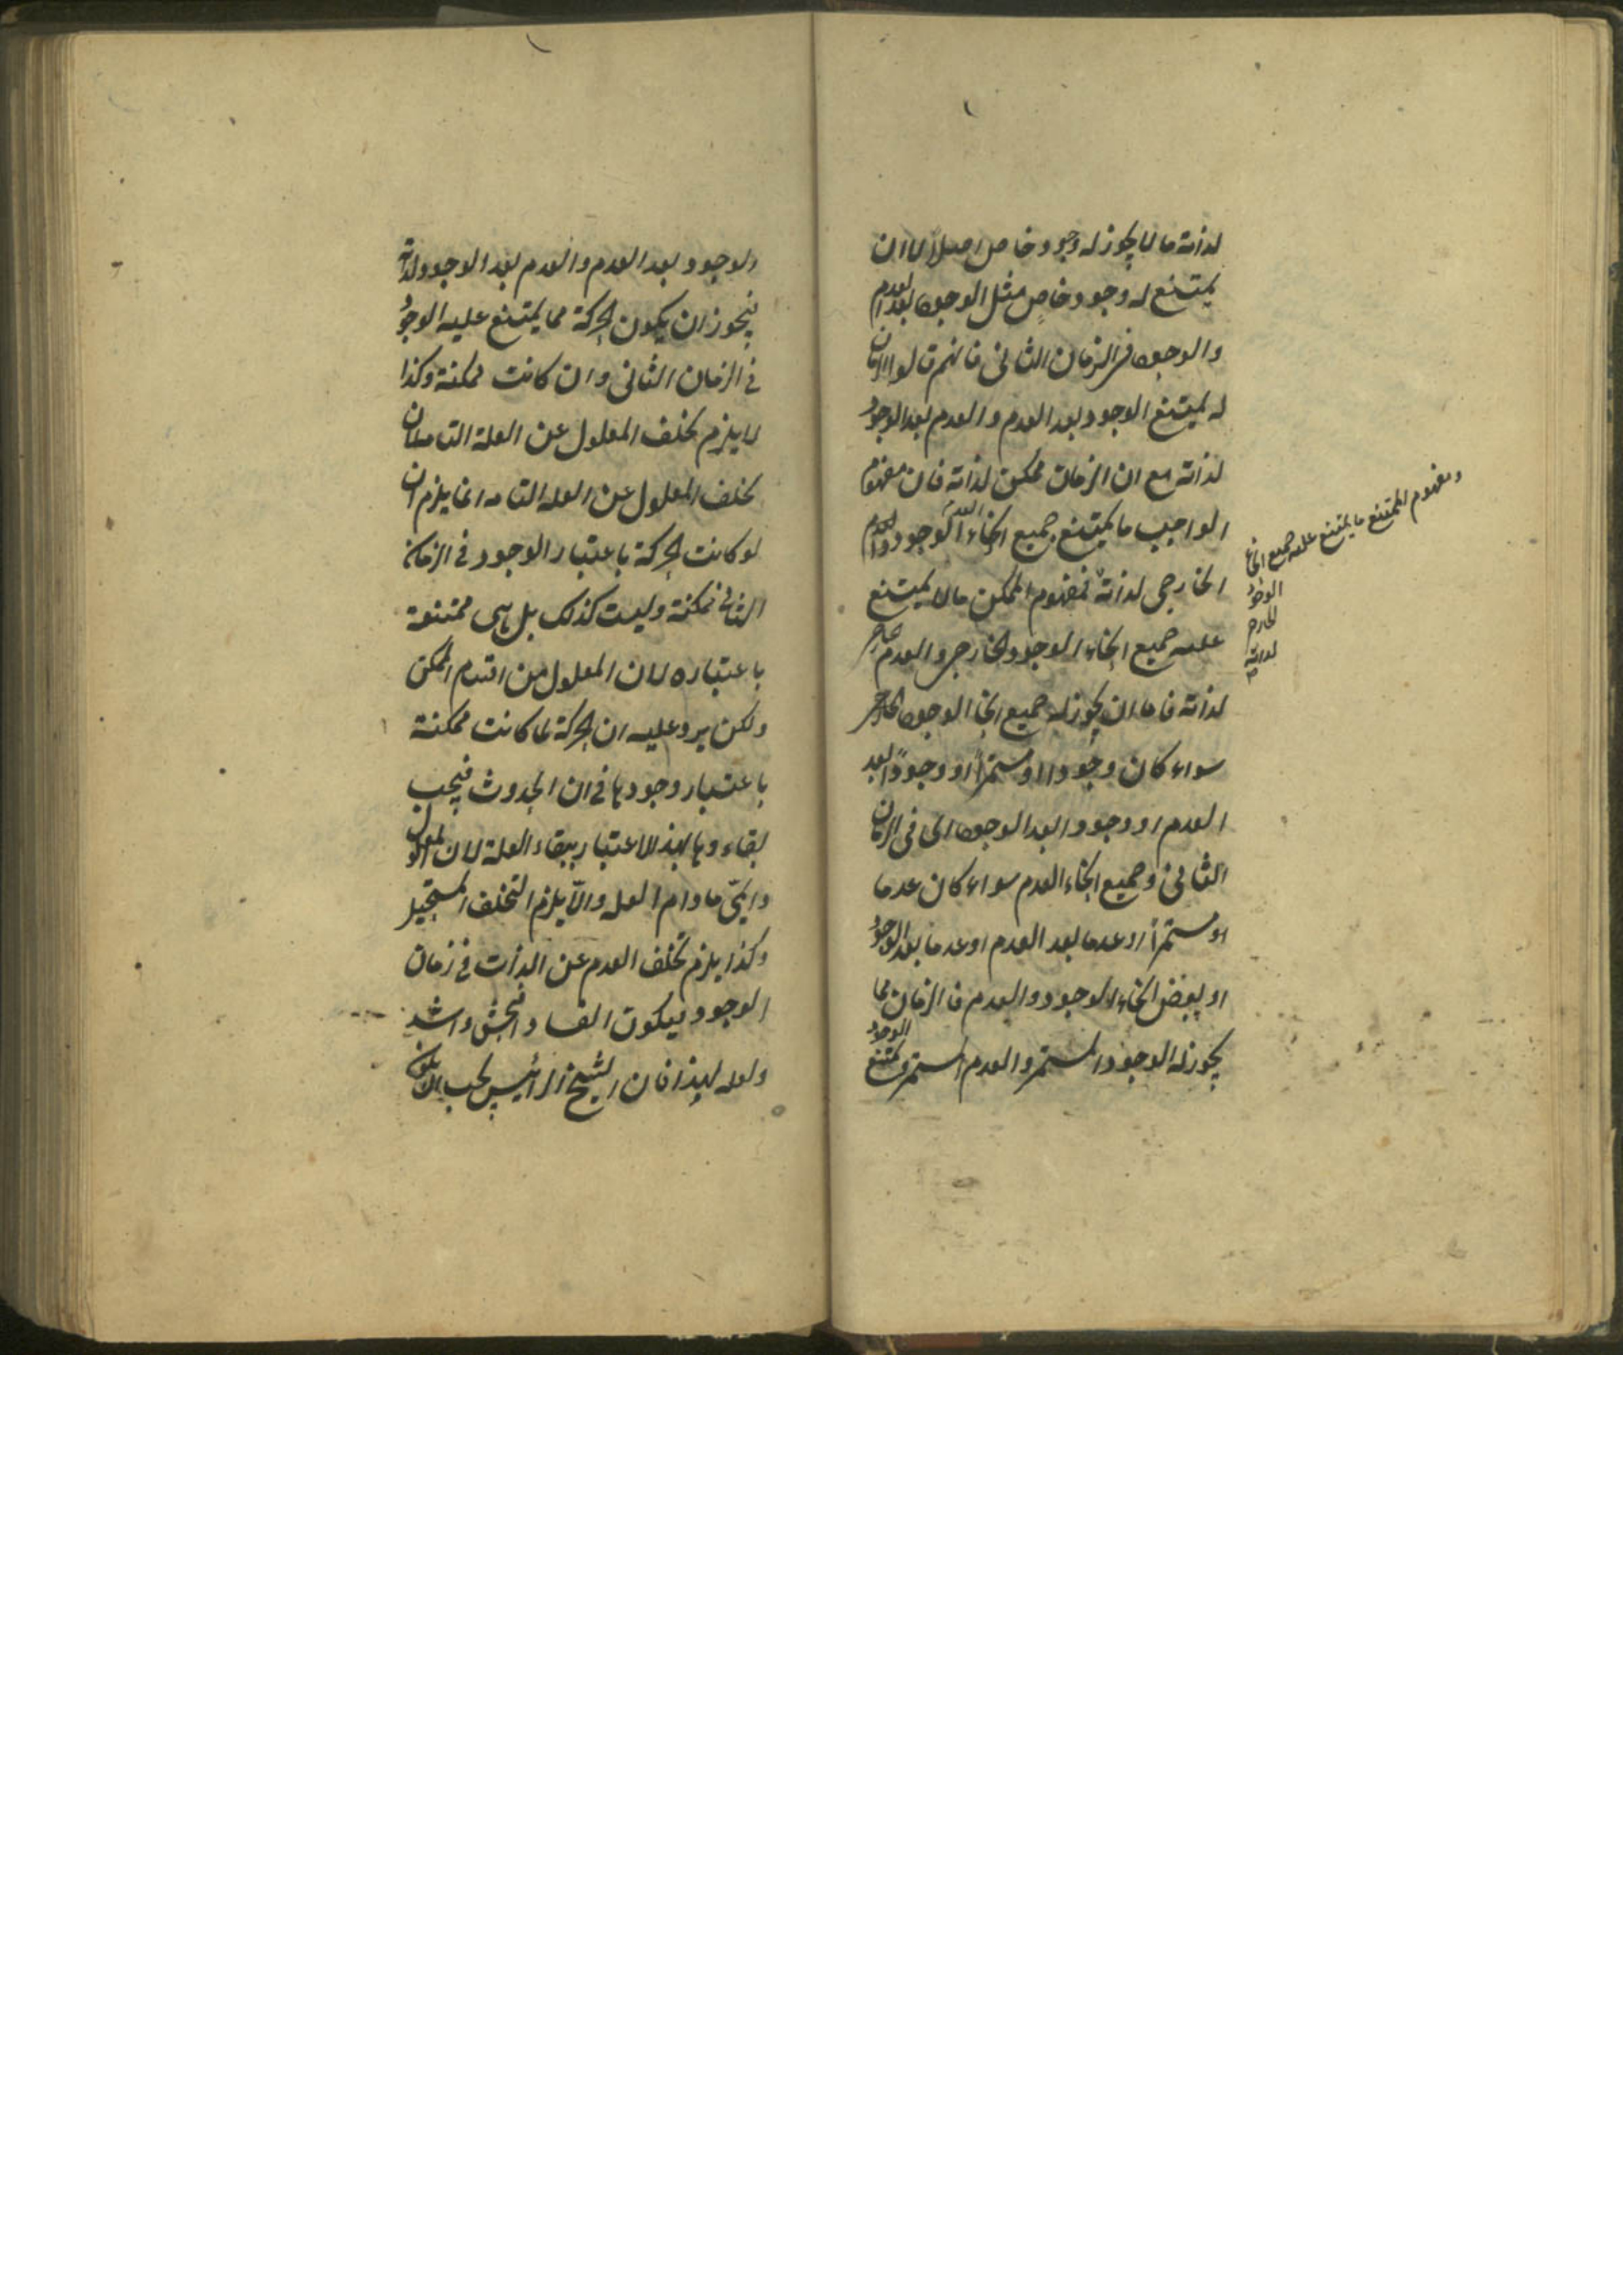 لذاته ما لا يجوز له وجود خاص اصلا لا ان
يمتنع له وجود خاص مثل الوجود بعد العدم
والوجود في الزمان الثاني فانهم قالوا الزمان
له يمتنع الوجود بعد العدم والعدم بعد الوجود
لذاته مع ان الزمان ممكن لذاته فان مفهوم
الواجب ما يمتنع جميع انحاء العدم
الخارجي لذاته فمفهوم الممكن ما لا يمتنع
عليه جميع انحاء الوجود الخارجي والعدم الخارجي
لذاته فاما ان يجوز له جميع انحا الوجود الخارجي
سواء كان وجودا او مستمرا او وجودا بعد
العدم او وجودا بعد الوجود اى في الزمان
الثاني وجميع انحاء العدم سواء كان عدما
او مستمرا او عدما بعد العدم او عدما بعد الوجود
او بعض انحاء الوجود والعدم فالزمان مما
يجوز له الوجود المستمر والعدم المستمر ويمتنع الوجود
ومفهوم الممتنع ما يمتنع عليه جميع انحاء
الوجود
الخارجي
لذاته
الوجود بعد العدم والعدم بعد الوجود لذاته
فيجوز ان يكون الحركة مما يمتنع عليه الوجود
في الزمان الثاني وان كانت ممكنة وكذا
لا يلزم تخلف المعلول عن العلة التامة لان
تخلف المعلول عن العله التامه انما يلزم ان
لو كانت الحركة باعتبار الوجود في الزمان
الثاني ممكنة وليست كذلك بل هى ممتنعة
باعتباره لان المعلول من اقسام الممكن
ولكن يرد عليه ان الحركة لما كانت ممكنة
باعتبار وجودها في ان الحدوث فيجب
بقاء وها بهذا الاعتبار ببقاء العلة لان المعلول
دايمى ما دام العله والا يلزم التخلف المستحيل
وكذا يلزم تخلف العدم عن الذات في زمان
الوجود فيكون الفساد افحش واشد
ولعله لهذا فان الشيخ الرائيس